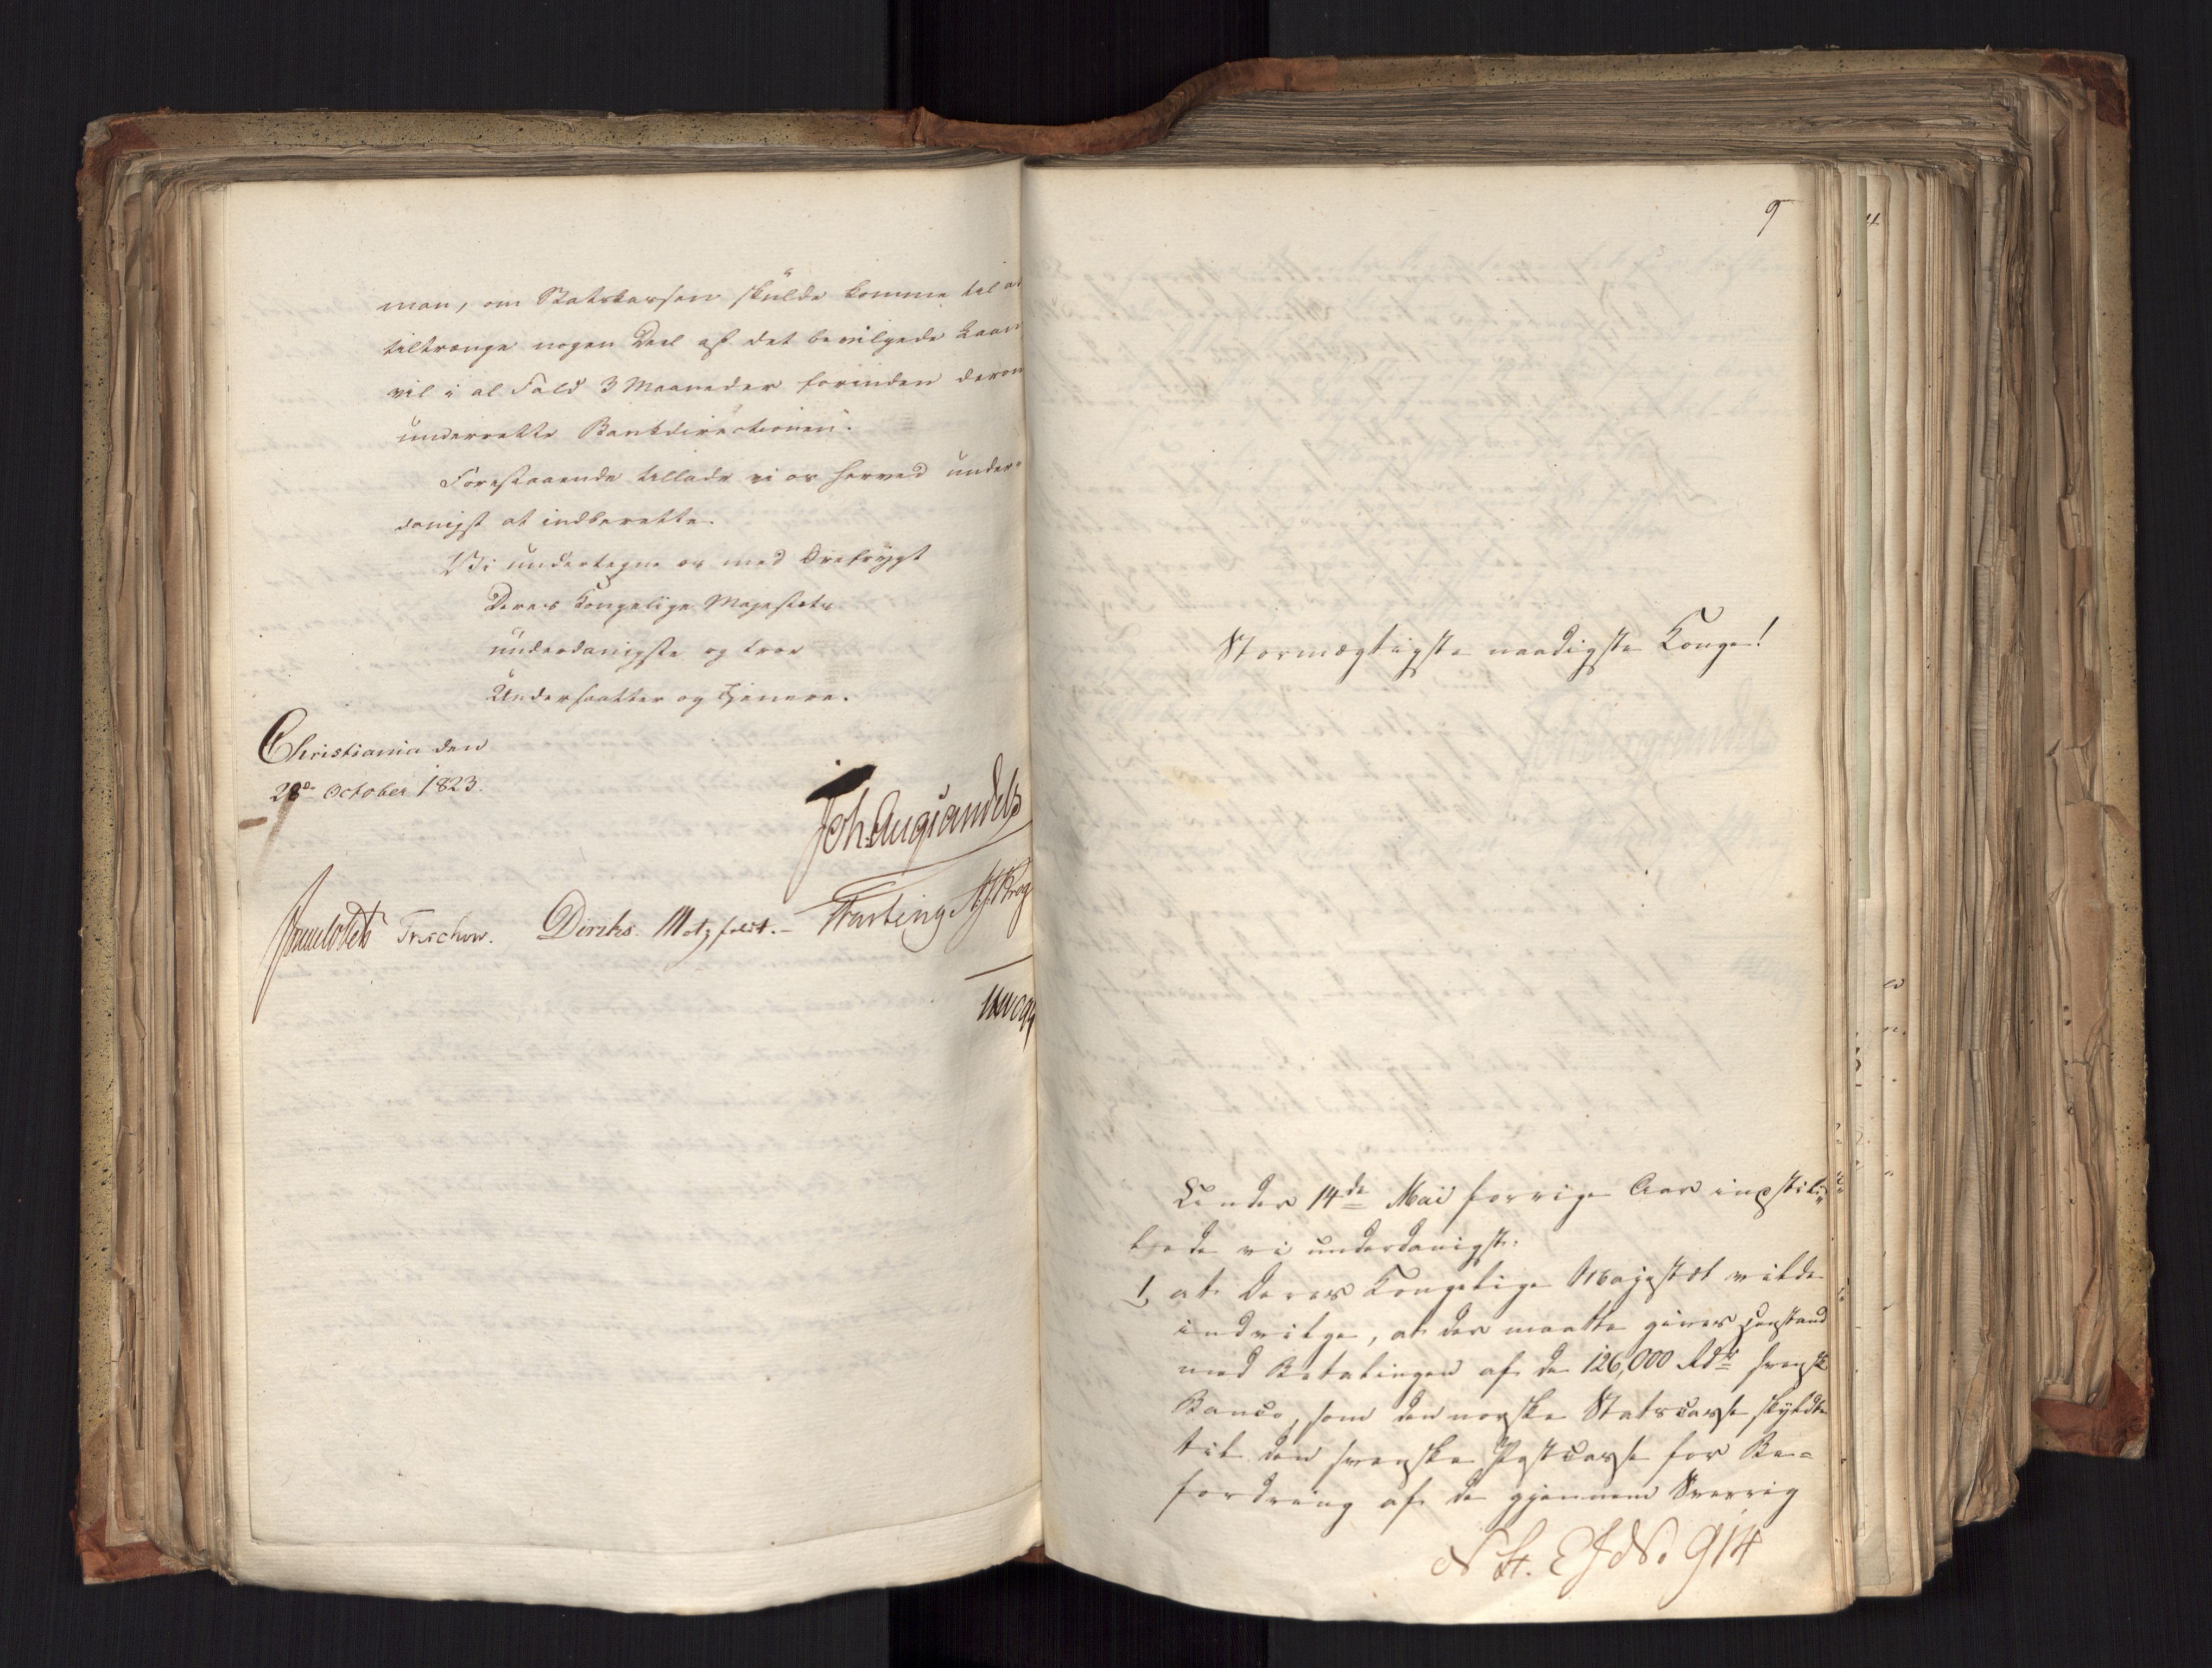 man, om Statskassen skulde komme til at
tiltrænge nogen Deel af det bevilgede Laan
vil i al Fald 3 Maaneder forinden derom
underrette Bankdirectionen.
Forestaaende tillade vi os herved under-
danigst at indberette.
Vi undertegne os med Ærefrygt
Deres Kongelige Majestæts
underdanigste og troe
Undersaatter og Tjenere.
Christiania den
28de October 1823.
Joh. Aug. Sandels
Sommelldt Treschow. Diriks. Motzfeldt. Fasting J. H. Krog
9
Stormægtigste naadigste Konge!
Under 14de Mai forrige Aar instil-
lede vi underdanigst:
1, at Deres Kongelige Majestæt vilde
indvilge, at der maatte gives Henstand
med Betalingen af de 126,000 Rdr svensk
Banco, som den norske Statscasse skyldte
til den svenske Postcasse for Be-
fordring af de gjennem Sverrig
No 914